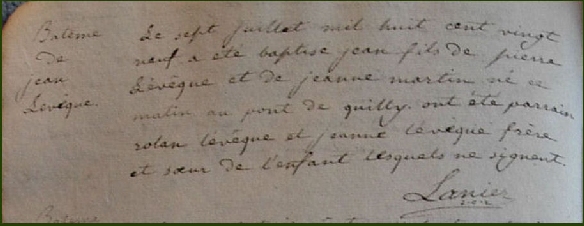 Batême
de
jean
Levêque.
Le sept juillet mil huit cent vingt
neuf a été baptise jean fils de pierre
Lévêque et de jeanne martin né ce
matin au pont de quilly. ont été parrain
rolan levêque et jeanne lévêque frère
et sœur de l'enfant lesquels ne signent.
Lanier
Batême